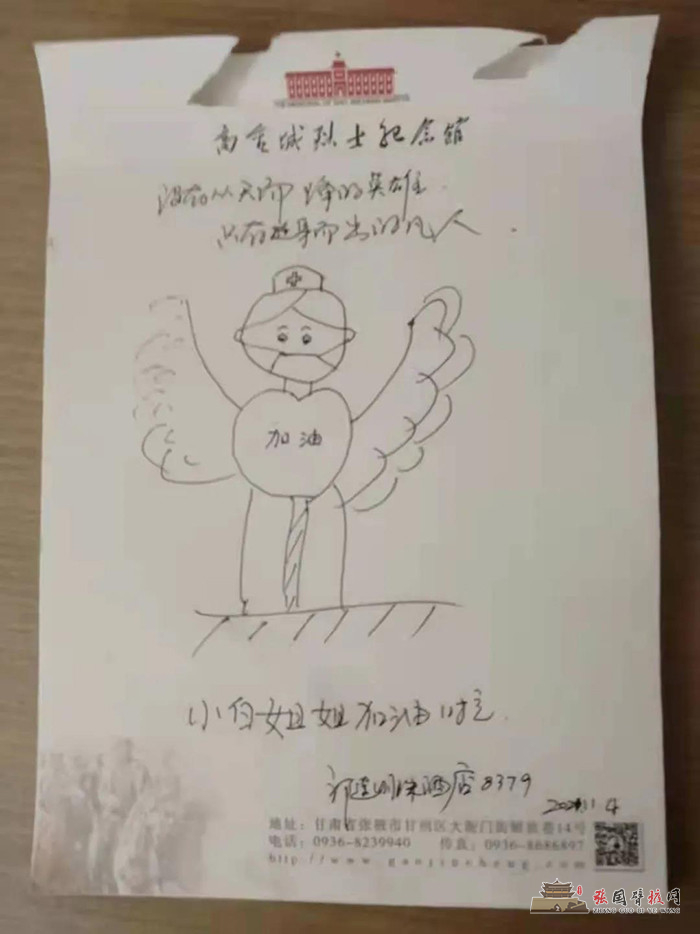 THE MEMORIAL OF GAO JINCHENG MARTYR
高金城烈士纪念馆
没有从天而降的英雄
只有挺身而出的凡人
加油
小白姐姐加油哦
祁连明珠酒店8379
11.4
地址：甘肃省张掖市甘州区大衙门街解放巷14号
电话：0936-8239940 传真：0936-8686897
http://www.gaojincheng.com
张国臂掖网
ZHANG GUO BI YE WANG